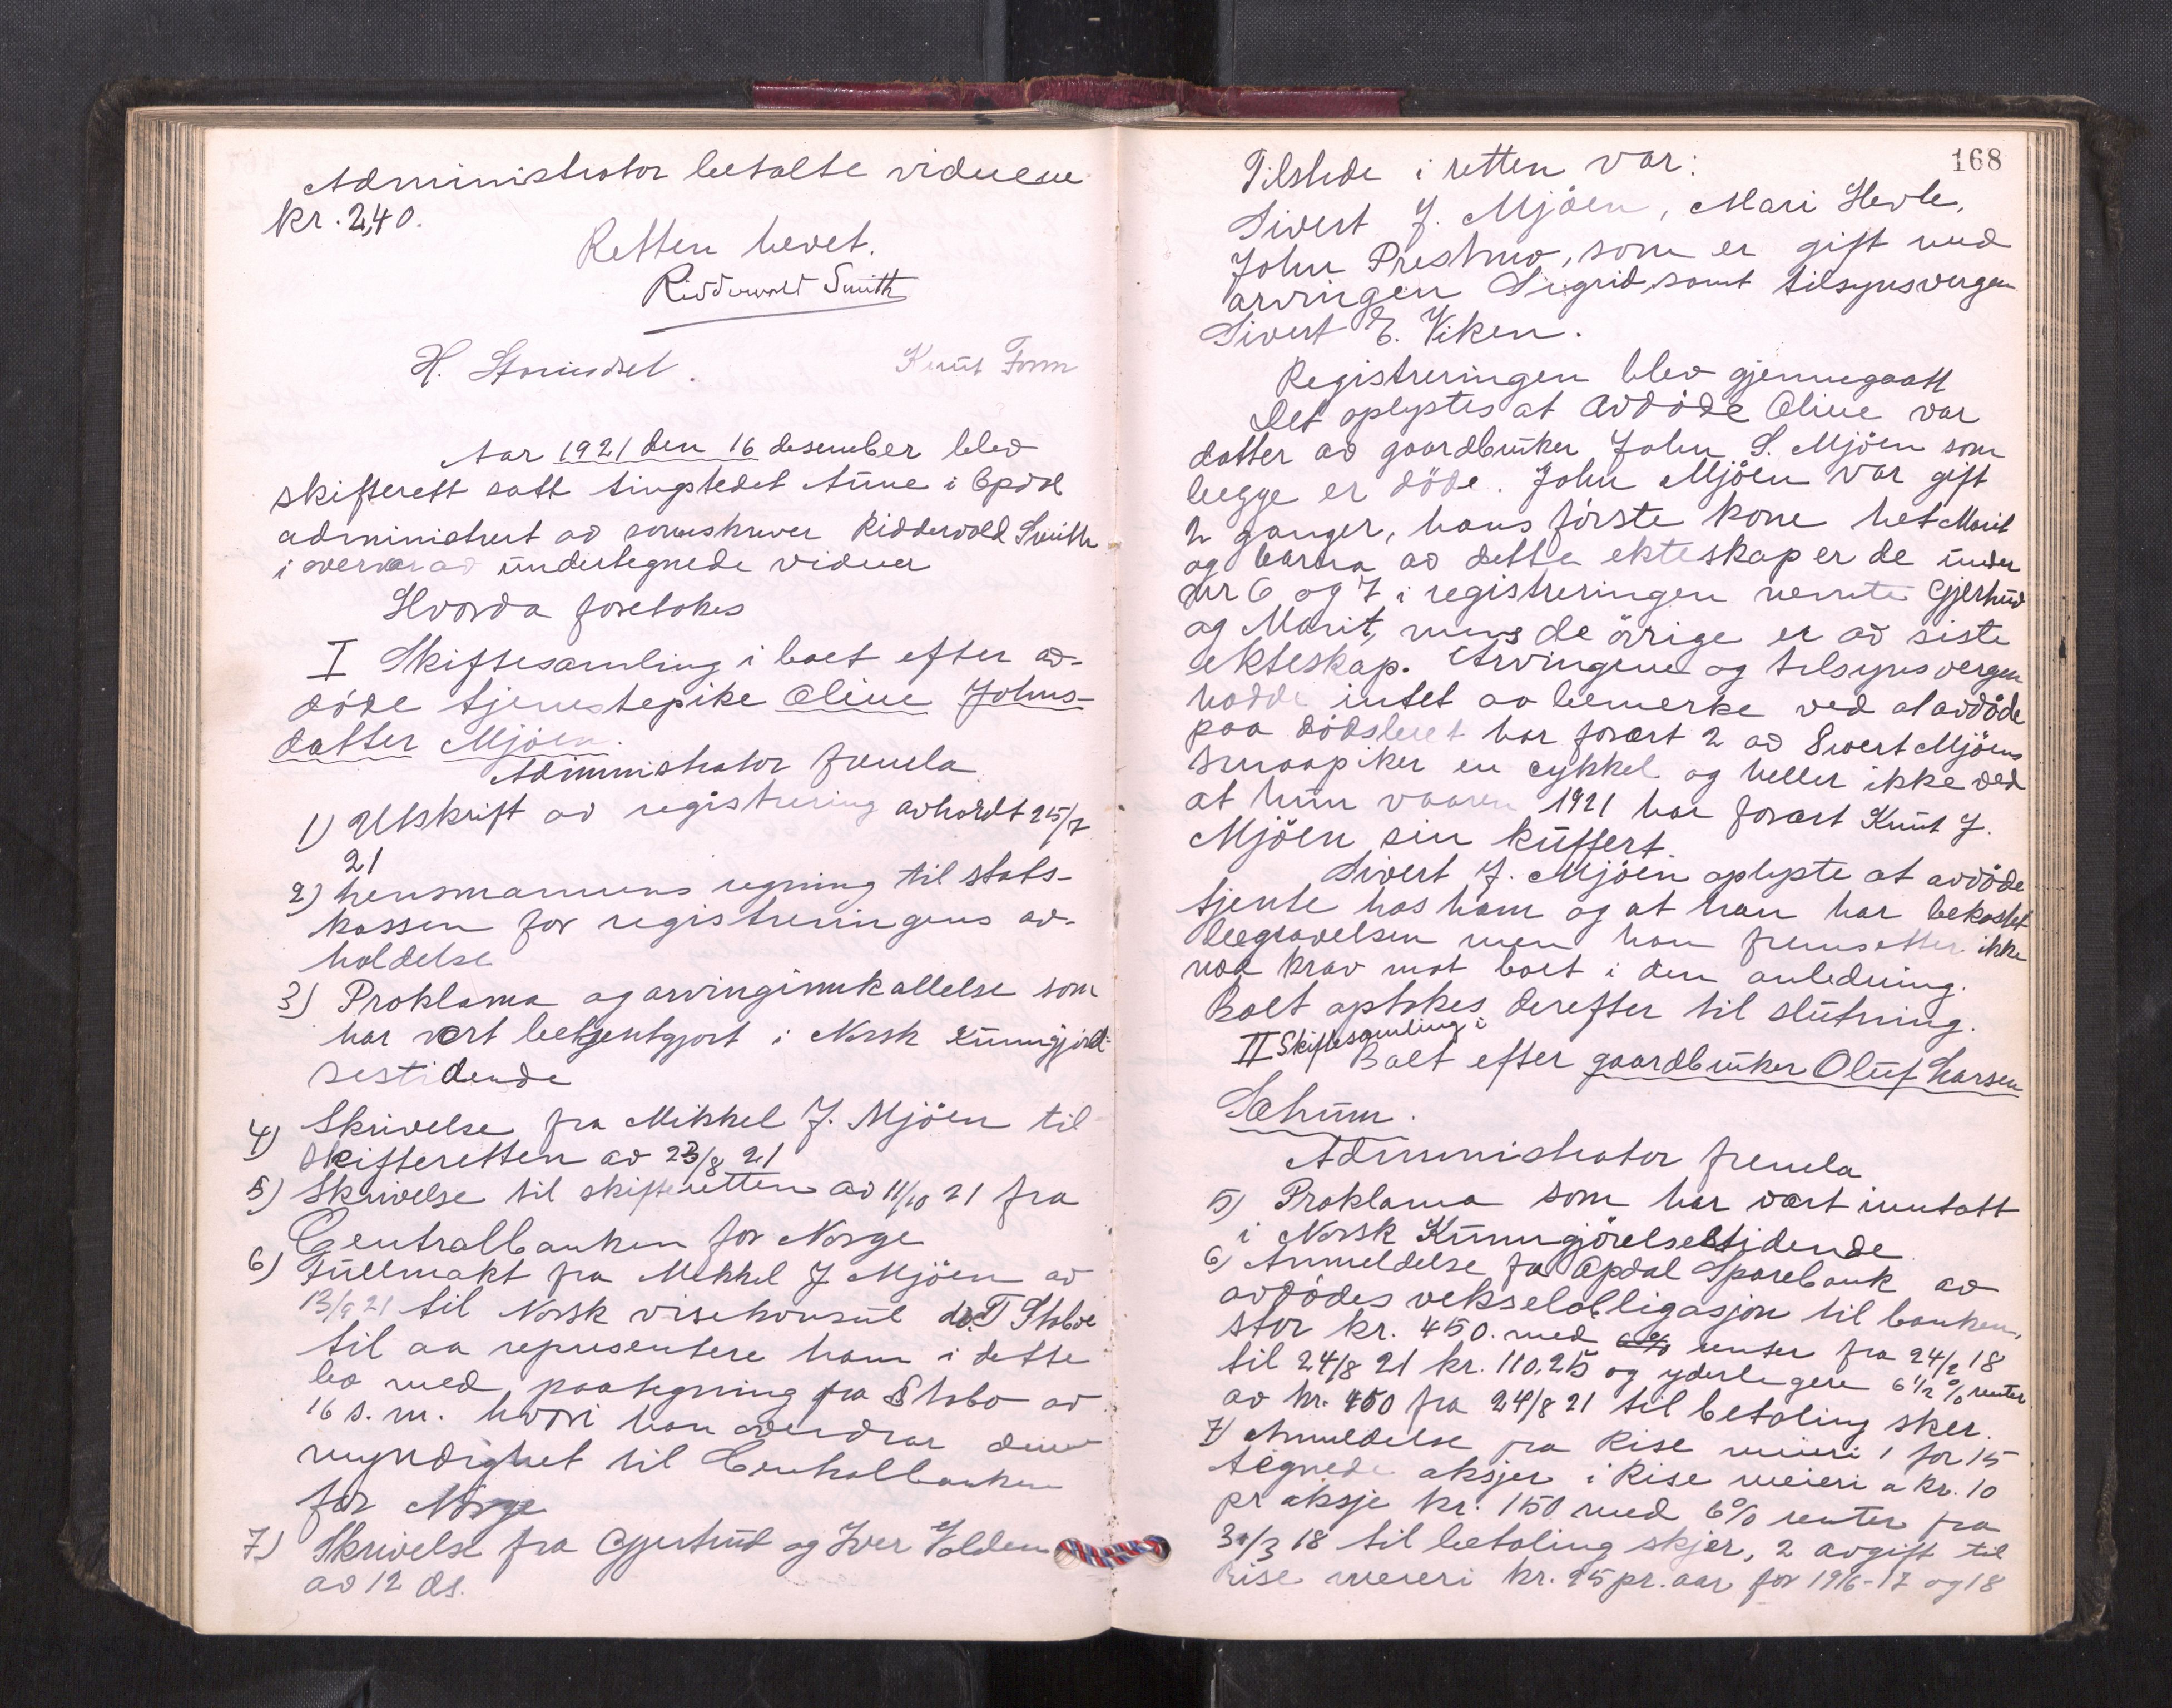 Administrator betalte vidnene
kr. 2,40.
Retten hevet.
Ridderwold Smith
H. Storindset.
Knut Form
Aar 1921 den 16 desember blev
skifterett satt tingstedet Aune i Opdal
administrert av sorenskriver Ridderwold Smith
i overvær av undertegnede vidner
Hvorda foretokes
I Skiftesamling i boet efter av-
døde tjenestepike Oline Johns-
datter Mjøen.
Administrator fremla
1) Utskrift av registrering avholdt 25/7
21
2) Lensmannens regning til stats-
kassen for registreringens av-
holdelse
3) Proklama og arvinginnkallelse som
har vært bekjentgjort i Norsk Kunngjørel-
sestidende
4) Skrivelse fra Mikkel J. Mjøen til
skifteretten av 23/8 21
5) Skrivelse til skifteretten av 11/10 21 fra
Centralbanken for Norge
6) Fullmakt fra Mikkel J Mjøen av
13/9 21 til Norsk visekonsul T Stabo
til aa representere ham i dette
bo med paategning fra Stabo av
16 s.m. hvori han overdrar denne
myndighet til Centralbanken
for Norge
7) Skrivelse fra Gjertrud og Iver Volden
av 12 ds.
168
Tilstede i retten var:
Sivert J. Mjøen, Mari Hevle,
John Prestmo, som er gift med
arvingen Sigrid, samt tilsynsvergen
Sivert E. Viken.
Registreringen blev gjennegaatt
Det oplystes at avdøde Oline var
datter av gaardbruker John S. Mjøen som
begge er døde. John Mjøen var gift
2 ganger, hans første kone het Marit
og barna av dette ekteskap er de under
nr 6 og 7 i registreringen nevnte Gjertrud
og Marit, mens de øvrige er av siste
ekteskap. Arvingene og tilsynsvergen
hadde intet aa bemerke ved at avdøde
paa dødsleiet har forært 2 av Sivert Mjøens
smaapiker en cykkel og heller ikke ved
at hun vaaren 1921 har forært Knut J.
Mjøen sin kuffert.
Sivert J. Mjøen oplyste at avdøde
tjente hos ham og at han har bekostet
begravelsen men han fremsetter ikke
noe krav mot boet i den anledning.
Boet optokes derefter til slutning.
II Skiftesamling i
Boet efter gaardbruker Oluf Larsen
Sæhum.
Administrator fremla
5) Proklama som har vært inntatt
i Norsk Kunngjørelsestidende.
6) Anmeldelse fra Opdal Sparebank av
avdødes vekselobligasjon til banken,
stor kr. 450. med 6% renter fra 24/2 18
til 24/8 21 kr. 110,25 og yderligere 6 1/2 % renter
av kr. 450 fra 24/8 21 til betaling sker.
7) Anmeldelse fra Rise meieri 1 for 15
tegnede aksjer i Rise meieri a kr. 10
pr aksje kr. 150 med 6% renter fra
31/3 18 til betaling skjer, 2 avgift til
Rise meieri kr. 25 pr. aar for 1916-17 og 18